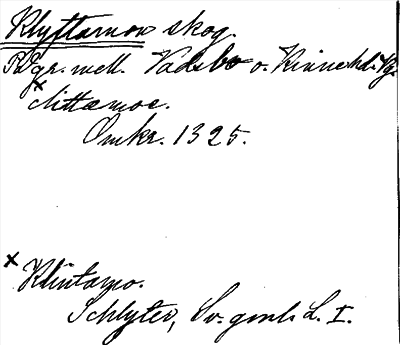 Klyftamon skog.
Rågr. mell. Vadsbo o. Kinne hd. Vg.
× clittæmoe.
Omkr. 1325.
× Klintamo.
Schlyter, Sv. gml. L. I.